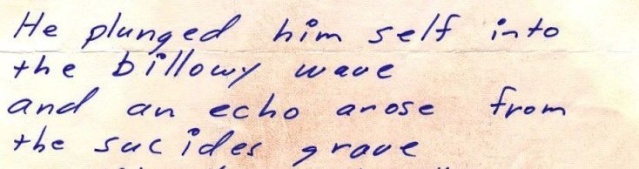 He plunged him self into
the billowy wave
and an echo arose from
the sucides grave